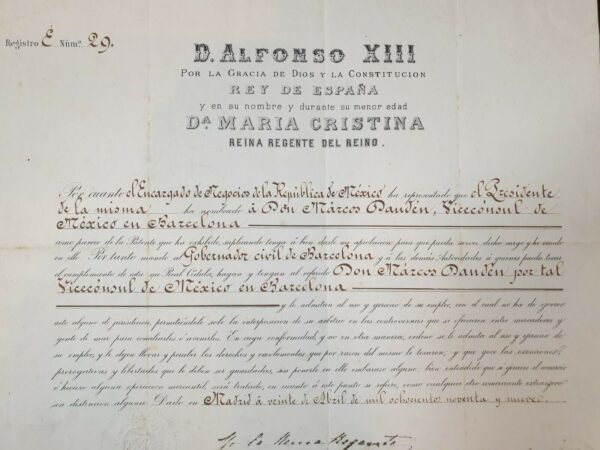 Registro E Núm.º 29.
D. ALFONSO XIII
POR LA GRACIA DE DIOS Y LA CONSTITUCION
REY DE ESPAÑA
y en su nombre y durante su menor edad
D.ª MARIA CRISTINA
REINA REGENTE DEL REINO.
Por cuanto el Encargado de Negocios de la República de México ha representado que el Presidente
de la misma ha nombrado á Don Márcos Dandén, Vicecónsul de
México en Barcelona
como parece de la Patente que ha exhibido, suplicando tenga á bien darle mi aprobacion para que pueda servir dicho cargo y he venido
en ello Por tanto mando al Gobernador civil de Barcelona y á las demás Autoridades á quienes pueda tocar
el cumplimiento de esta mi Real Cédula, hayan y tengan al referido Don Márcos Dandén por tal
Vicecónsul de México en Barcelona
y le admitan al uso y ejercicio de su empleo, con el cual no ha de ejercer
acto alguno de jurisdiccion, permitiéndole solo la interposicion de su arbitrio en las controversias que se ofrecieren entre mercaderes y
gente de mar para conciliarles ó avenirles. En cuya conformidad y no en otra manera, ordeno se le admita al uso y ejercicio de
su empleo, y le dejen llevar y percibir los derechos y emolumentos que por razon del mismo le tocaren; y que goce las exenciones,
prerogativas y libertades que le deben ser guardadas, sin ponerle en ello embarazo alguno: bien entendido que si ejerciere el comercio
ó hiciere alguna operacion mercantil, será tratado, en cuanto á este punto se refiere, como cualquier otro comerciante extranjero
sin distincion alguna. Dado en Madrid á veinte de Abril de mil ochocientos noventa y nueve.
Yo la Reina Regente